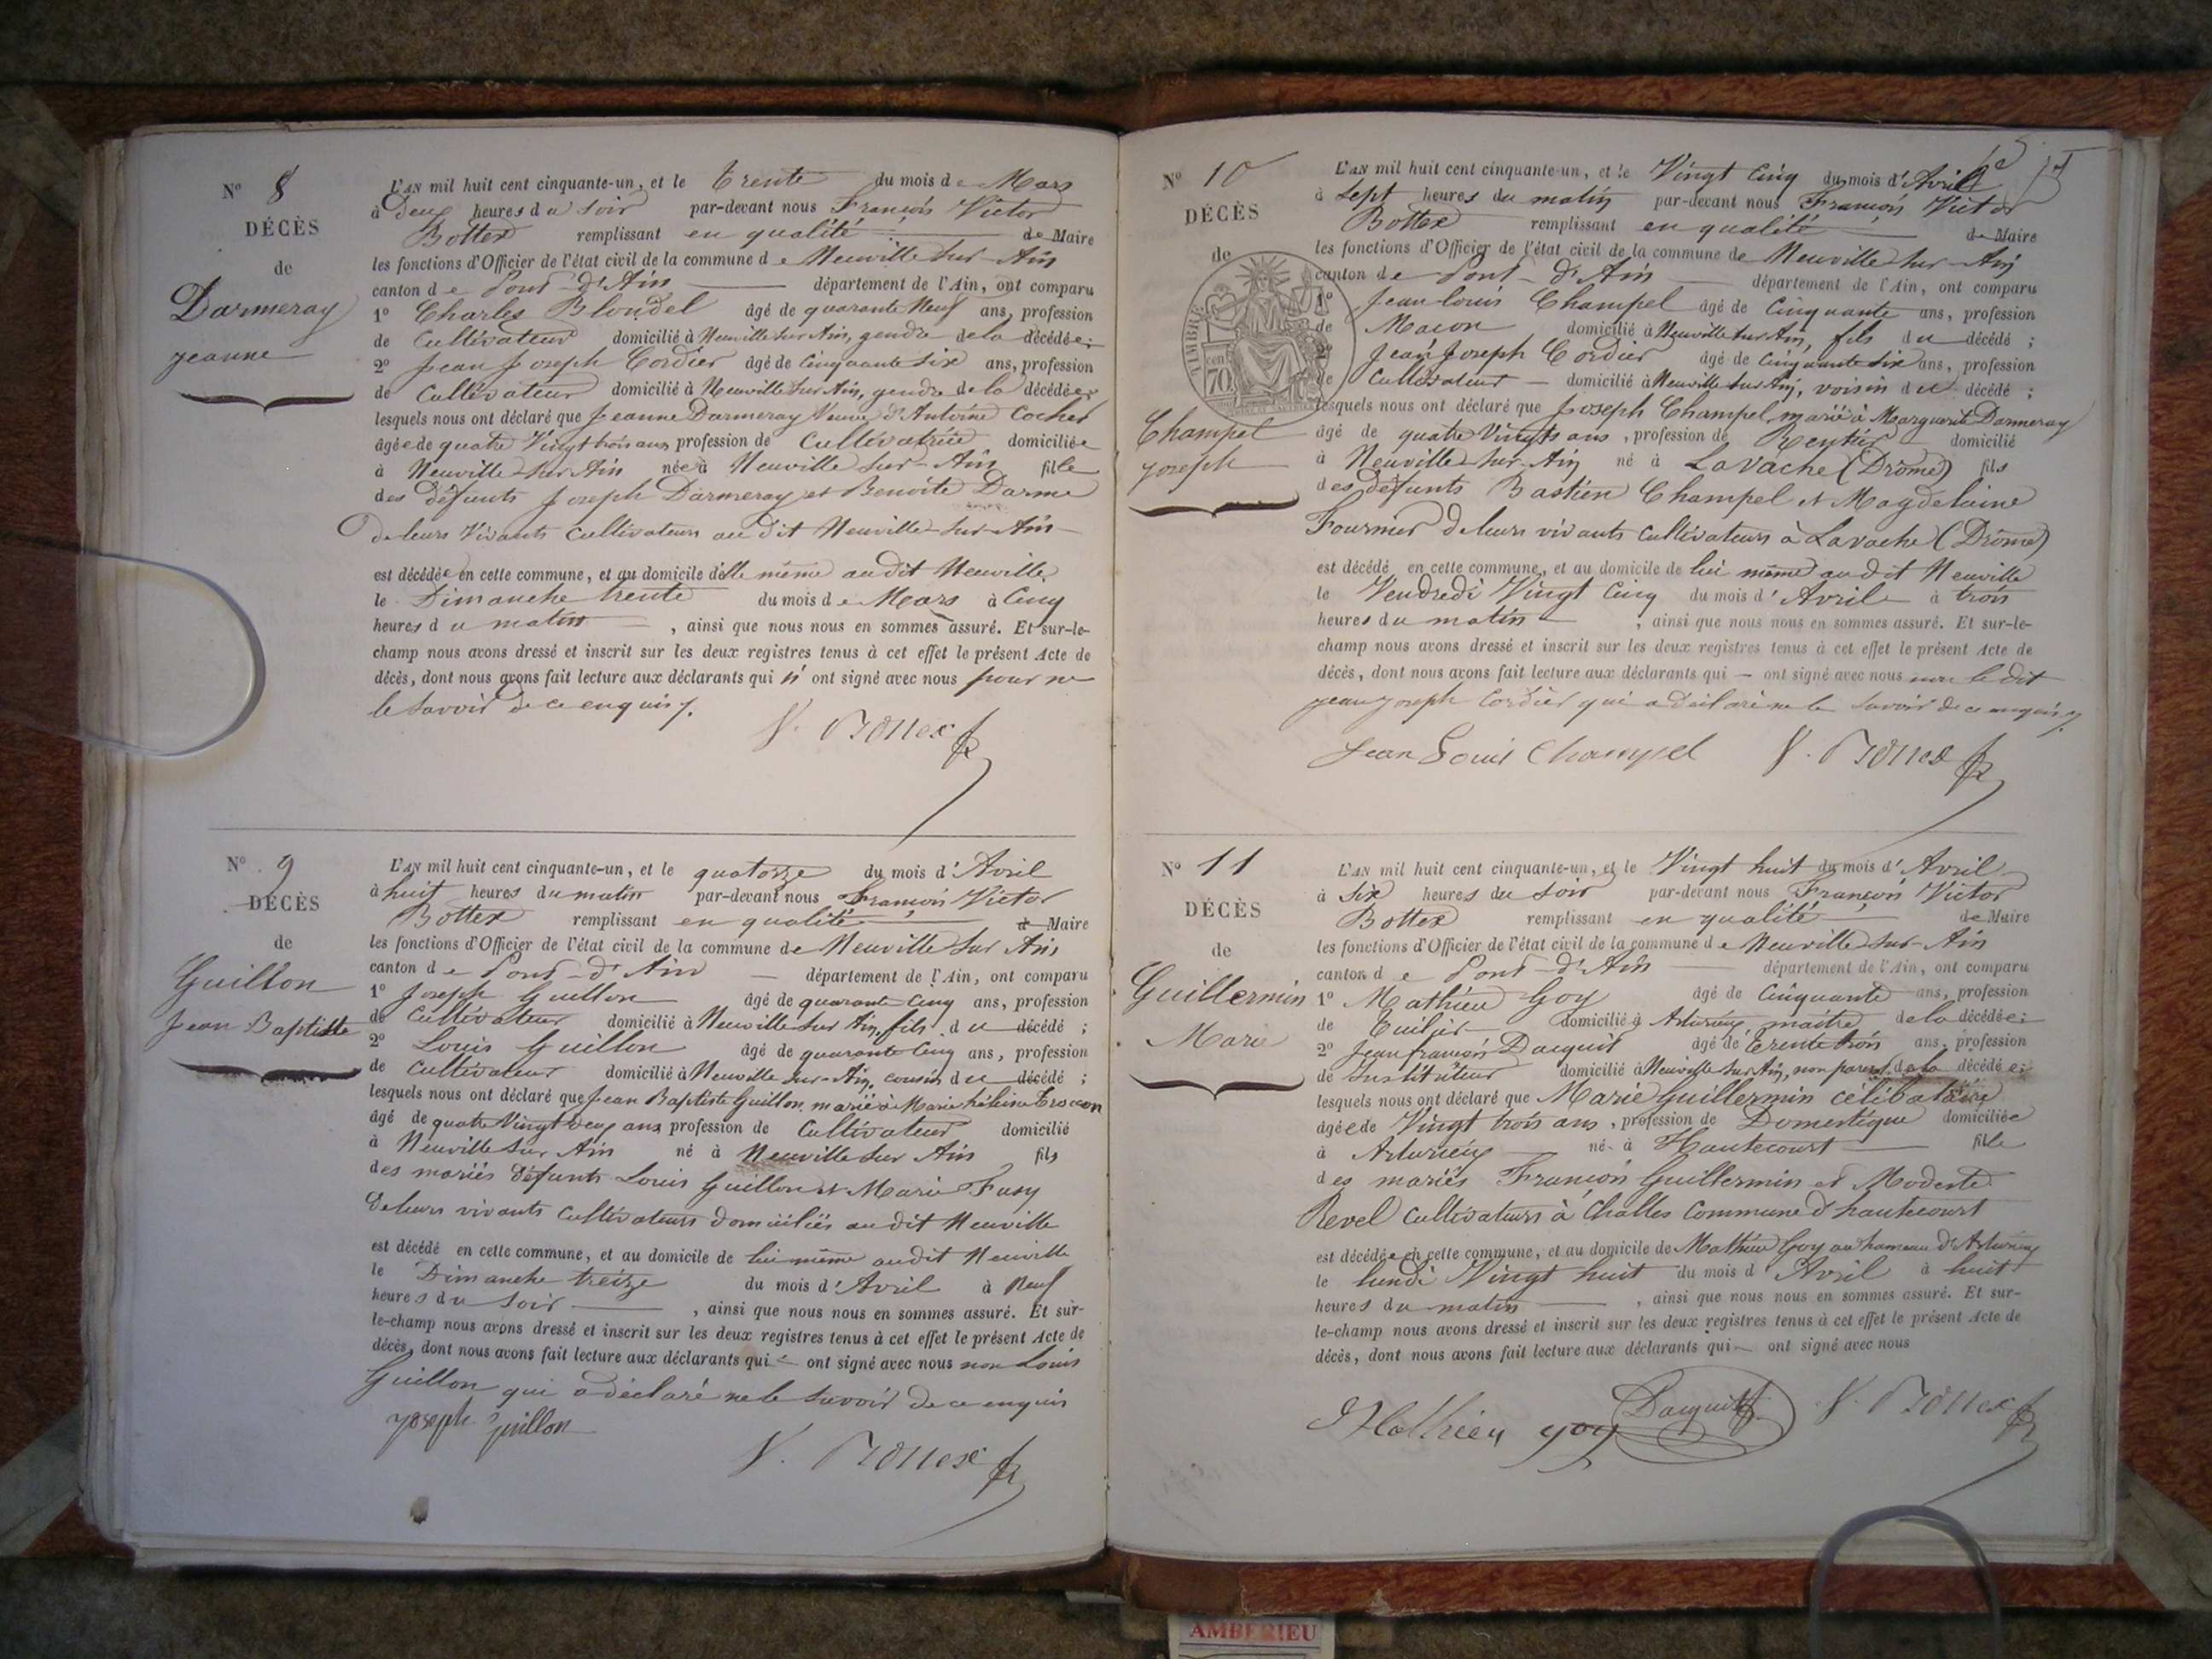 N° 8
DÉCÈS
de
Darmeray
Jeanne
L'AN mil huit cent cinquante-un, et le Trente du mois de Mars
à Deux heures du Soir par-devant nous François Victor
Bottex remplissant en qualité de Maire
les fonctions d'Officier de l'état civil de la commune de Neuville sur Ain
canton de Pont-d'Ain département de l'Ain, ont comparu
1° Charles Blondel âgé de quarante Neuf ans, profession
de Cultivateur domicilié à Neuville sur Ain, gendre de la décédée;
2° Jean Joseph Cordier âgé de Cinquante Six ans, profession
de Cultivateur domicilié à Neuville sur Ain, gendre de la décédée;
lesquels nous ont déclaré que Jeanne Darmeray Veuve d'Antoine Cocher
âgée de quatre Vingt trois ans profession de Cultivatrice domiciliée
à Neuville sur Ain née à Neuville sur-Ain fille
des défunts Joseph Darmeray et Benoite Darme
de leurs Vivants Cultivateurs au dit Neuville-sur-Ain
est décédée en cette commune, et au domicile d'elle même au dit Neuville
le Dimanche trente du mois de Mars à Cinq
heures du matin, ainsi que nous nous en sommes assuré. Et sur-le-
champ nous avons dressé et inscrit sur les deux registres tenus à cet effet le présent Acte de
décès, dont nous avons fait lecture aux déclarants qui n'ont signé avec nous pour ne
le Savoir de ce enquis.
V. Bottex
N° 9
DÉCÈS
de
Guillon
Jean Baptiste
L'AN mil huit cent cinquante-un, et le quatorze du mois d'Avril
à huit heures du matin par-devant nous François Victor
Bottex remplissant en qualité de Maire
les fonctions d'Officier de l'état civil de la commune de Neuville sur Ain
canton de Pont-d'Ain département de l'Ain, ont comparu
1° Joseph Guillon âgé de quarante Cinq ans, profession
de Cultivateur domicilié à Neuville sur Ain, fils du décédé;
2° Louis Guillon âgé de quarante Cinq ans, profession
de Cultivateur domicilié à Neuville sur-Ain, cousin du décédé;
lesquels nous ont déclaré que Jean Baptiste Guillon, marié à Marie héleine
âgé de quatre Vingt deux ans profession de Cultivateur domicilié
à Neuville sur Ain né à Neuville sur Ain fils
des mariés défunts Louis Guillon et Marie Fusy
de leurs vivants Cultivateurs domiciliés au dit Neuville
est décédé en cette commune, et au domicile de lui même au dit Neuville
le Dimanche treize du mois d'Avril à Neuf
heures du Soir, ainsi que nous nous en sommes assuré. Et sur-
le-champ nous avons dressé et inscrit sur les deux registres tenus à cet effet le présent Acte de
décès, dont nous avons fait lecture aux déclarants qui ont signé avec nous non Louis
Guillon qui a déclaré ne le Savoir de ce enquis
Joseph Guillon
V. Bottex
N° 10
DÉCÈS
de
TIMBRE
70 cen
Champel
Joseph
15
L'AN mil huit cent cinquante-un, et le Vingt Cinq du mois d'Avril
à Sept heures du matin par-devant nous François Victor
Bottex remplissant en qualité de Maire
les fonctions d'Officier de l'état civil de la commune de Neuville sur-Ain
canton de Pont-d'Ain département de l'Ain, ont comparu
1° Jean louis Champel âgé de Cinquante ans, profession
de Maçon domicilié à Neuville sur Ain, fils du décédé;
2° Jean Joseph Cordier âgé de Cinquante Six ans, profession
de Cultivateur domicilié à Neuville sur Ain, voisin du décédé;
lesquels nous ont déclaré que Joseph Champel, marié à Marguerite Darmeray
âgé de quatre Vingts ans, profession de Rentier domicilié
à Neuville sur-Ain né à Lavache (Drôme) fils
des défunts Bastien Champel et Magdelaine
Fournier de leurs vivants Cultivateurs à Lavache (Drôme)
est décédé en cette commune, et au domicile de lui même au dit Neuville
le Vendredi Vingt Cinq du mois d'Avril à trois
heures du matin, ainsi que nous nous en sommes assuré. Et sur-le-
champ nous avons dressé et inscrit sur les deux registres tenus à cet effet le présent Acte de
décès, dont nous avons fait lecture aux déclarants qui ont signé avec nous non le dit
Jean Joseph Cordier qui a déclaré ne le Savoir de ce enquis.
Jean Louis Champel V. Bottex
N° 11
DÉCÈS
de
Guillermin
Marie
L'AN mil huit cent cinquante-un, et le Vingt huit du mois d'Avril
à Six heures du Soir par-devant nous François Victor
Bottex remplissant en qualité de Maire
les fonctions d'Officier de l'état civil de la commune de Neuville sur-Ain
canton de Pont-d'Ain département de l'Ain, ont comparu
1° Mathieu Goy âgé de Cinquante ans, profession
de Tuilier domicilié à Arturieux, maître de la décédée;
2° Jean françois Dacquit âgé de Trente trois ans, profession
de Instituteur domicilié à Neuville sur Ain, non parent de la décédée;
lesquels nous ont déclaré que Marie Guillermin célibataire
âgée de Vingt trois ans, profession de Domestique domiciliée
à Arturieux né à Hautecourt fille
des mariés François Guillermin et Modeste
Revel cultivateurs à Challes Commune d'hautecourt
est décédée en cette commune, et au domicile de Mathieu Goy au hameau d'Arturieux
le lundi Vingt huit du mois d'Avril à huit
heures du matin, ainsi que nous nous en sommes assuré. Et sur-
le-champ nous avons dressé et inscrit sur les deux registres tenus à cet effet le présent Acte de
décès, dont nous avons fait lecture aux déclarants qui ont signé avec nous
Mathieu goy Dacquit V. Bottex
AMBERIEU